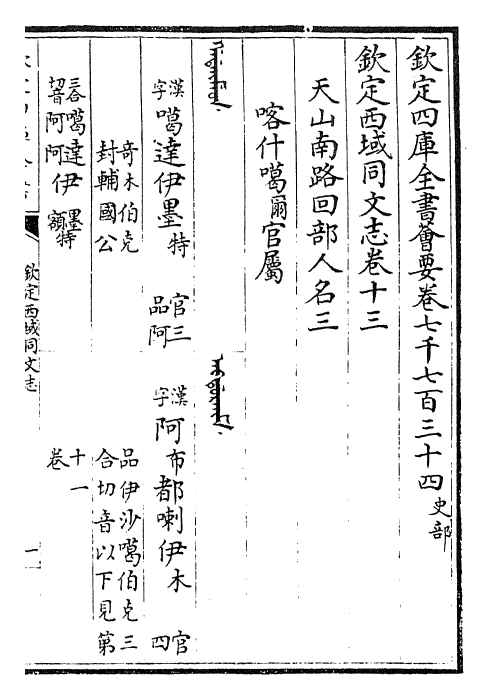 欽定四庫全書薈要卷七千七百三十四 史部
欽定西域同文志卷十三
天山南路回部人名三
喀什噶爾官屬
漢字 噶達伊墨特 官三品阿
奇木伯克
封輔國公
三合切音 噶阿達阿伊墨額特
漢字 阿布都喇伊木 官四
品伊沙噶伯克三
合切音以下見第
十一
卷
欽定西域同文志
一